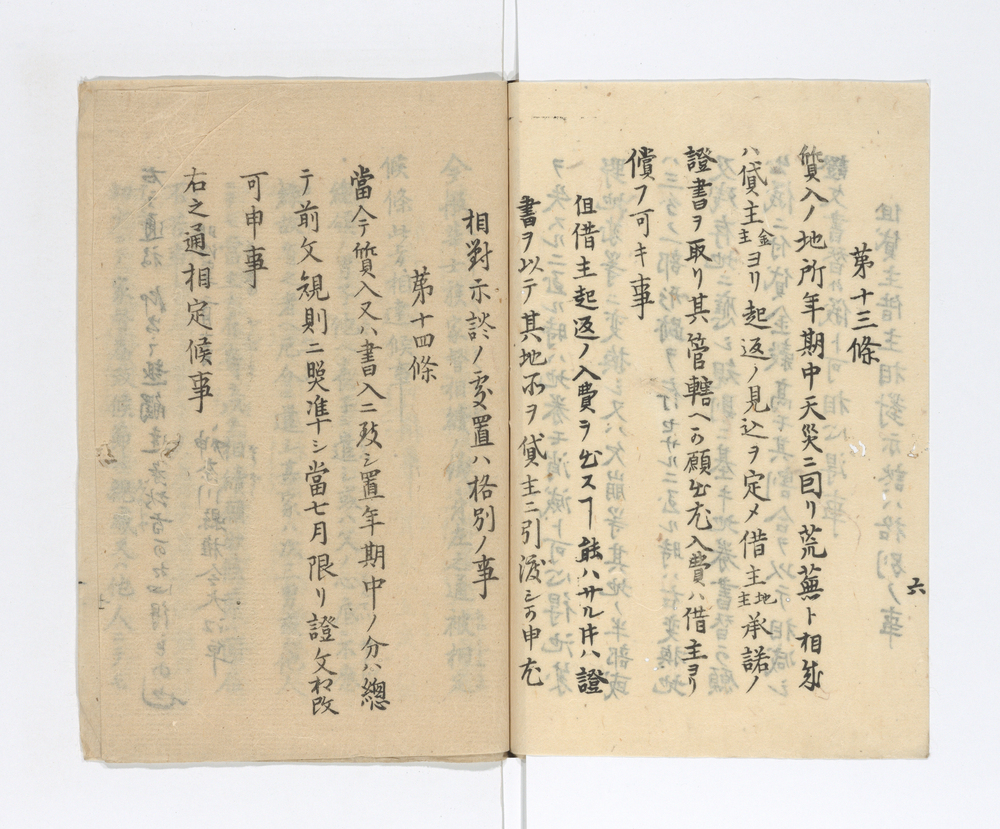 六
第十三條
質入ノ地所年期中天災ニ囙リ荒蕪ト相成
ハ貸主金主ヨリ起返ノ見込ヲ定メ借主地主承諾ノ
證書ヲ取リ其管轄ヘ可願出尤入費ハ借主ヨリ
償フ可キ事
但借主起返ノ入費ヲ出スヿ能ハサル片ハ證
書ヲ以テ其地所ヲ貸主ニ引渡シ可申尤
相對示談ノ處置ハ格別ノ事
第十四條
當今テ質入又ハ書入ニ致シ置年期中ノ分ハ總
テ前文規則ニ照準シ當七月限リ證文相改
可申事
右之通相定候事